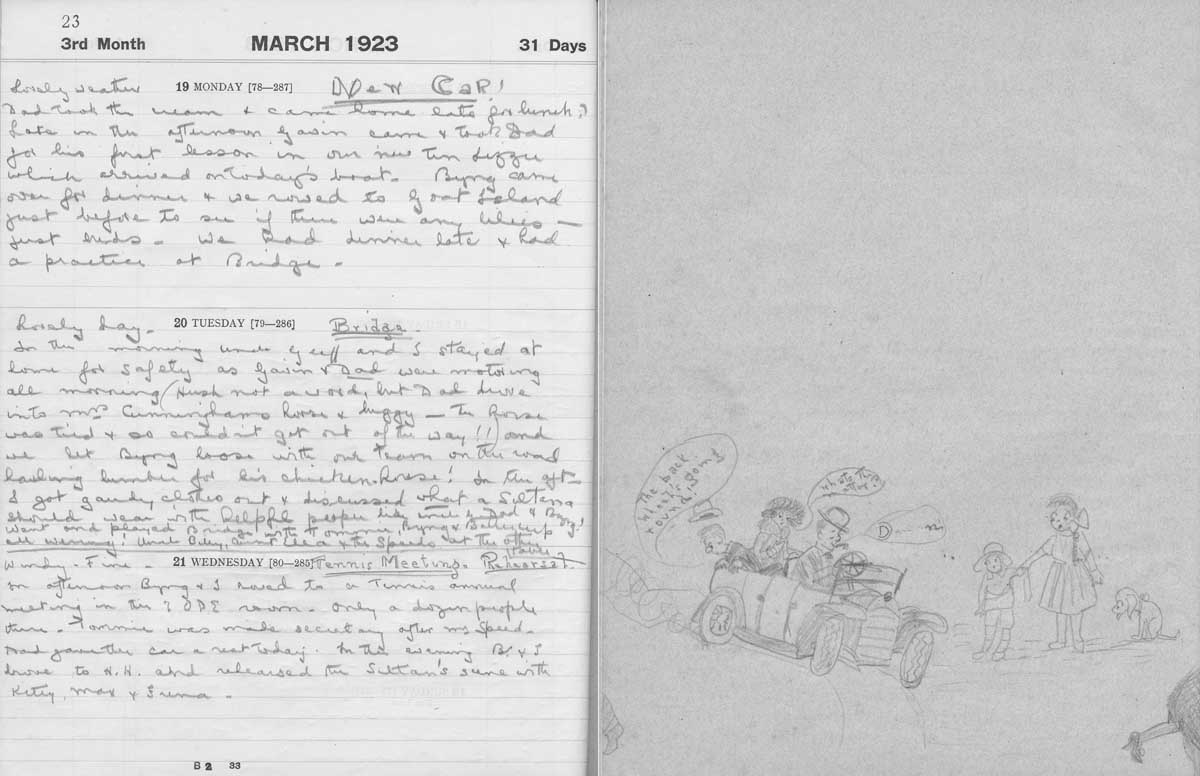 23
3rd Month MARCH 1923 31 Days
Lovely weather 19 MONDAY [78—287] New Car!
Dad took the cream & came home late for lunch
Late in the afternoon Gavin came & took Dad
for his first lesson in our new Tin Lizzie
which arrived on today's boat. Byng came
over for dinner & we rowed to Goat Island
just before to see if there were any lilies —
just buds. We had dinner late & had
a practice at Bridge.
Lovely day. 20 TUESDAY [79—286] Bridge.
In the morning Uncle Geoff and I stayed at
home for safety as Gavin & Dad were motoring
all morning (Hush not a word, but Dad drove
into Mrs Cunninghams horse & buggy — The horse
was tied & so couldn't get out of the way!!) and
we let Byng loose with our team on the road
hauling lumber for his chicken-house! In the aft.
I got gaudy clothes out & discussed what a Sultana
should wear with helpful people like Uncle G, Dad & Byng!
Went and played Bridge with Tommie, Byng &
all evening! & the Speeds at the other
table
Windy. Fine. 21 WEDNESDAY [80—285] Tennis Meeting. Rehearsal.
In afternoon Byng & I rowed to a Tennis annual
meeting in the I ODE room. Only a dozen people
there. Tommie was made secretary after Mr Speed.
Dad gave the car a rest today. In the evening B. & I
drove to H.H. and rehearsed the Sultan's scene with
Kitty, Max &
B 2 33
The back wheel's going round!
whats that
after
D